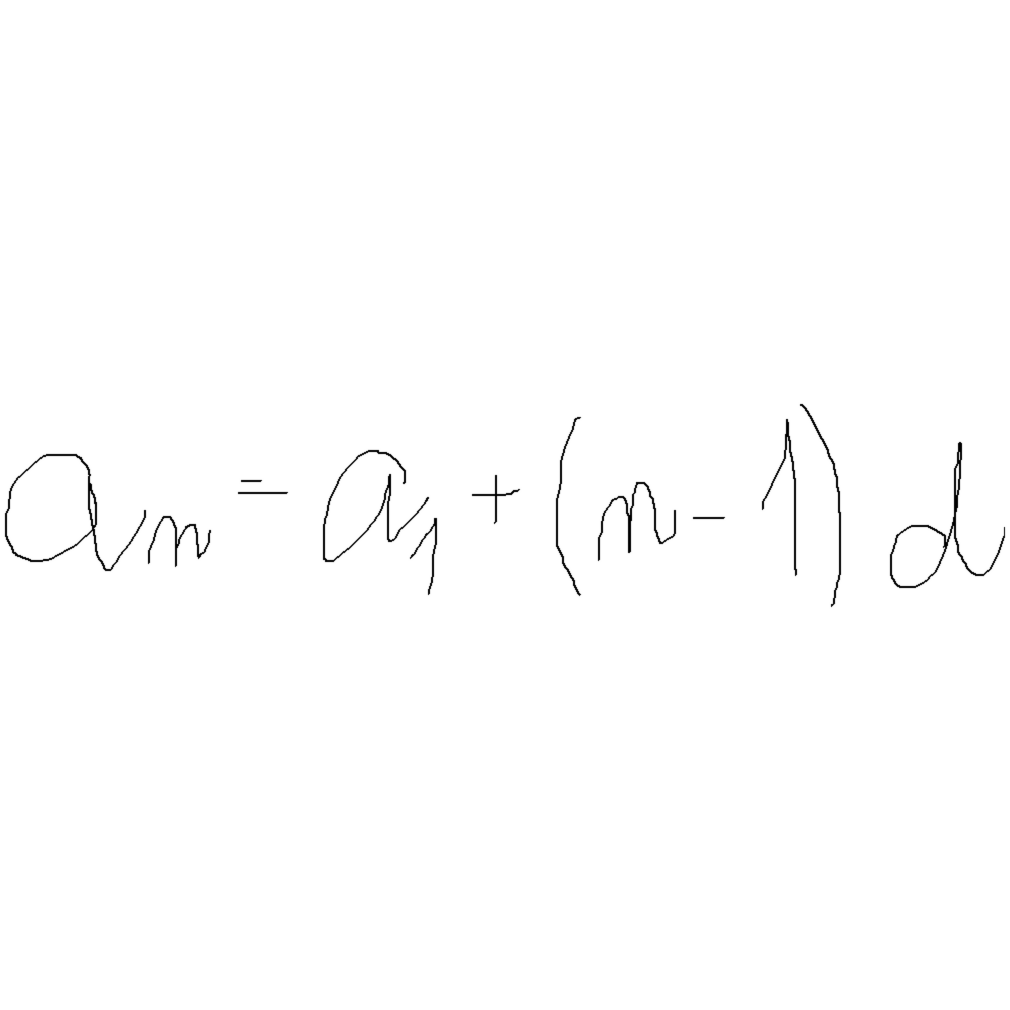 aₙ = a₁ + (n - 1) d